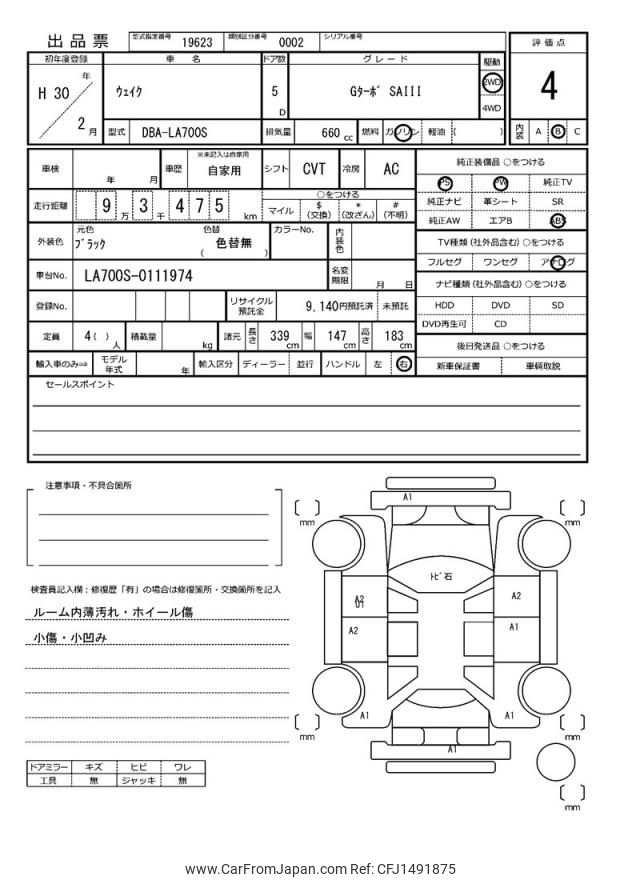 出品票
型式指定番号 19623 類別区分番号 0002 シリアル番号
評価点
4
内装 A B C
初年度登録 車名 ドア数 グレード 駆動
H 30 年 2 月
ウェイク 5 D Gターボ SAIII 2WD 4WD
型式 DBA-LA700S 排気量 660 cc 燃料 ガソリン 軽油 ( )
車検 年 月 車歴 ※未記入は自家用 自家用 シフト CVT 冷房 AC
走行距離 9 万 3 千 4 7 5 km
○をつける
マイル $ (交換) * (改ざん) # (不明)
外装色 元色 ブラック 色替 色替無 ( ) カラーNo. 内装色
車台No. LA700S-0111974 名変期限 月 日
登録No. リサイクル預託金 9,140円預託済 未預託
定員 4( ) 人 積載量 kg 諸元 長さ 339 cm 幅 147 cm 高さ 183 cm
輸入車のみ⇒ モデル年式 年 輸入区分 ディーラー 並行 ハンドル 左 右
純正装備品 ○をつける
PS PW 純正TV
純正ナビ 革シート SR
純正AW エアB ABS
TV種類 (社外品含む) ○をつける
フルセグ ワンセグ アナログ
ナビ種類 (社外品含む) ○をつける
HDD DVD SD
DVD再生可 CD
後日発送品 ○をつける
新車保証書 車輌取説
セールスポイント
注意事項・不具合箇所
検査員記入欄：修復歴「有」の場合は修復箇所・交換箇所を記入
ルーム内薄汚れ・ホイール傷
小傷・小凹み
ドアミラー キズ ヒビ ワレ
工具 無 ジャッキ 無
A1
mm
mm
トビ石
A2
U1
A2
A2
A1
A1
A1
mm
mm
A1
mm
www.CarFromJapan.com Ref: CFJ1491875